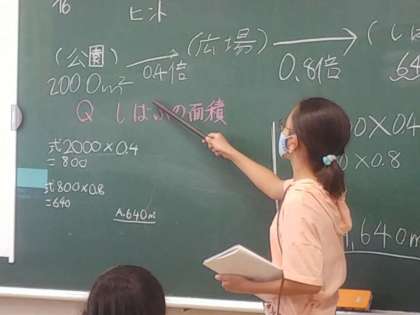 16 ヒント
(公園) (広場) (しば
2000m² 0.4倍 0.8倍 640
Q しばふの面積
式2000×0.4
=800
式800×0.8
=640
A.640m
0×0.4
0×0.8
1,640m